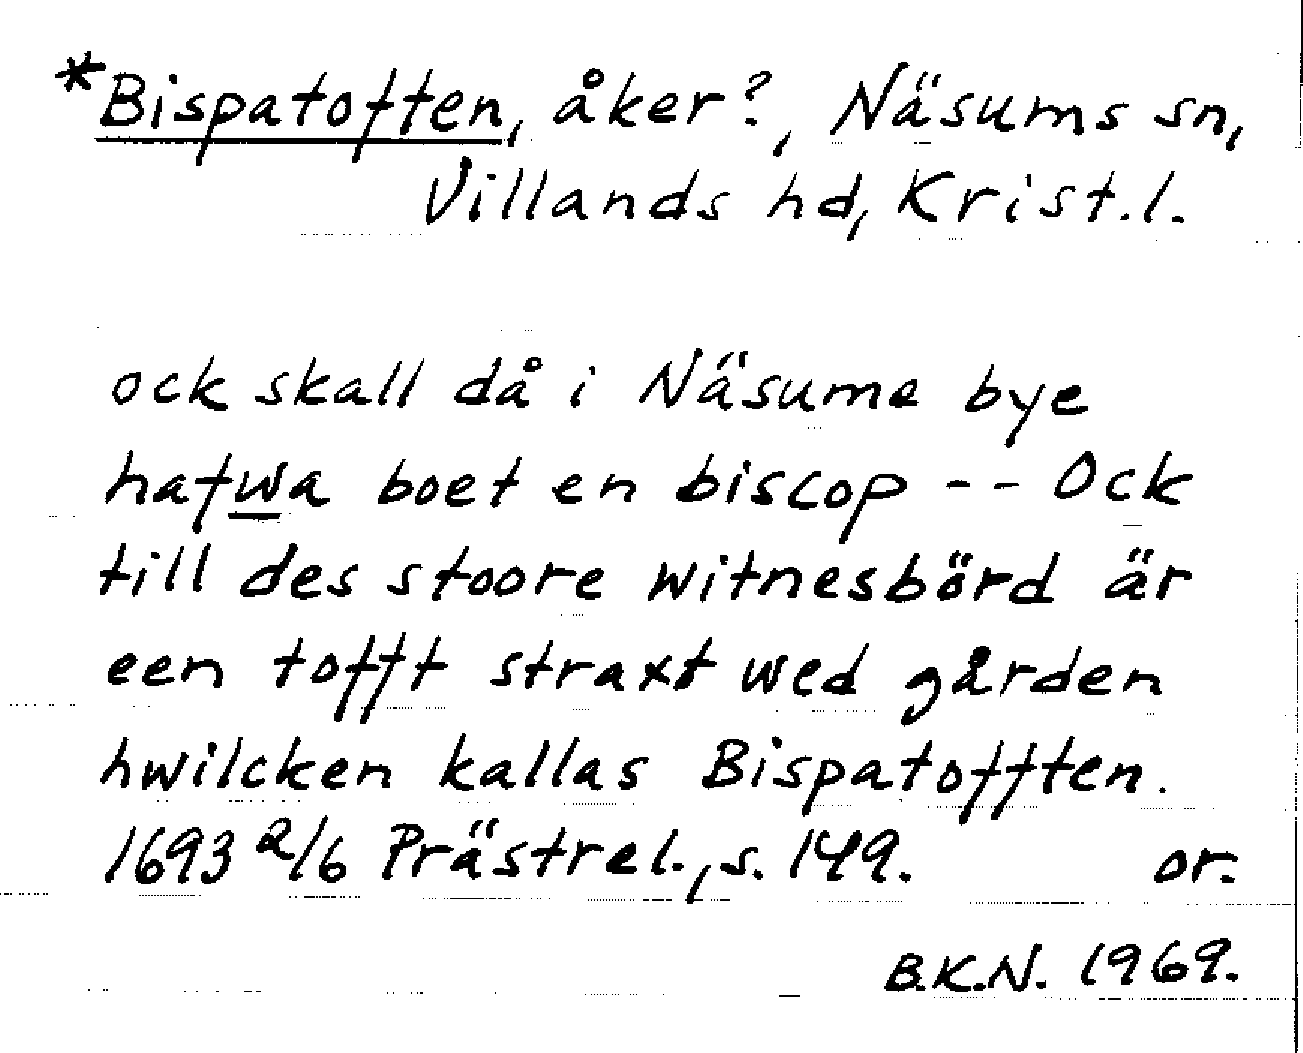 *Bispatoften, åker?, Näsums sn,
Villands hd, Krist.l.
ock skall då i Näsume bye
hafwa boet en biscop -- Ock
till des stoore witnesbörd är
een tofft straxt wed gården
hwilcken kallas Bispatofften.
1693 2/6 Prästrel., s. 149. or.
B.K.N. 1969.